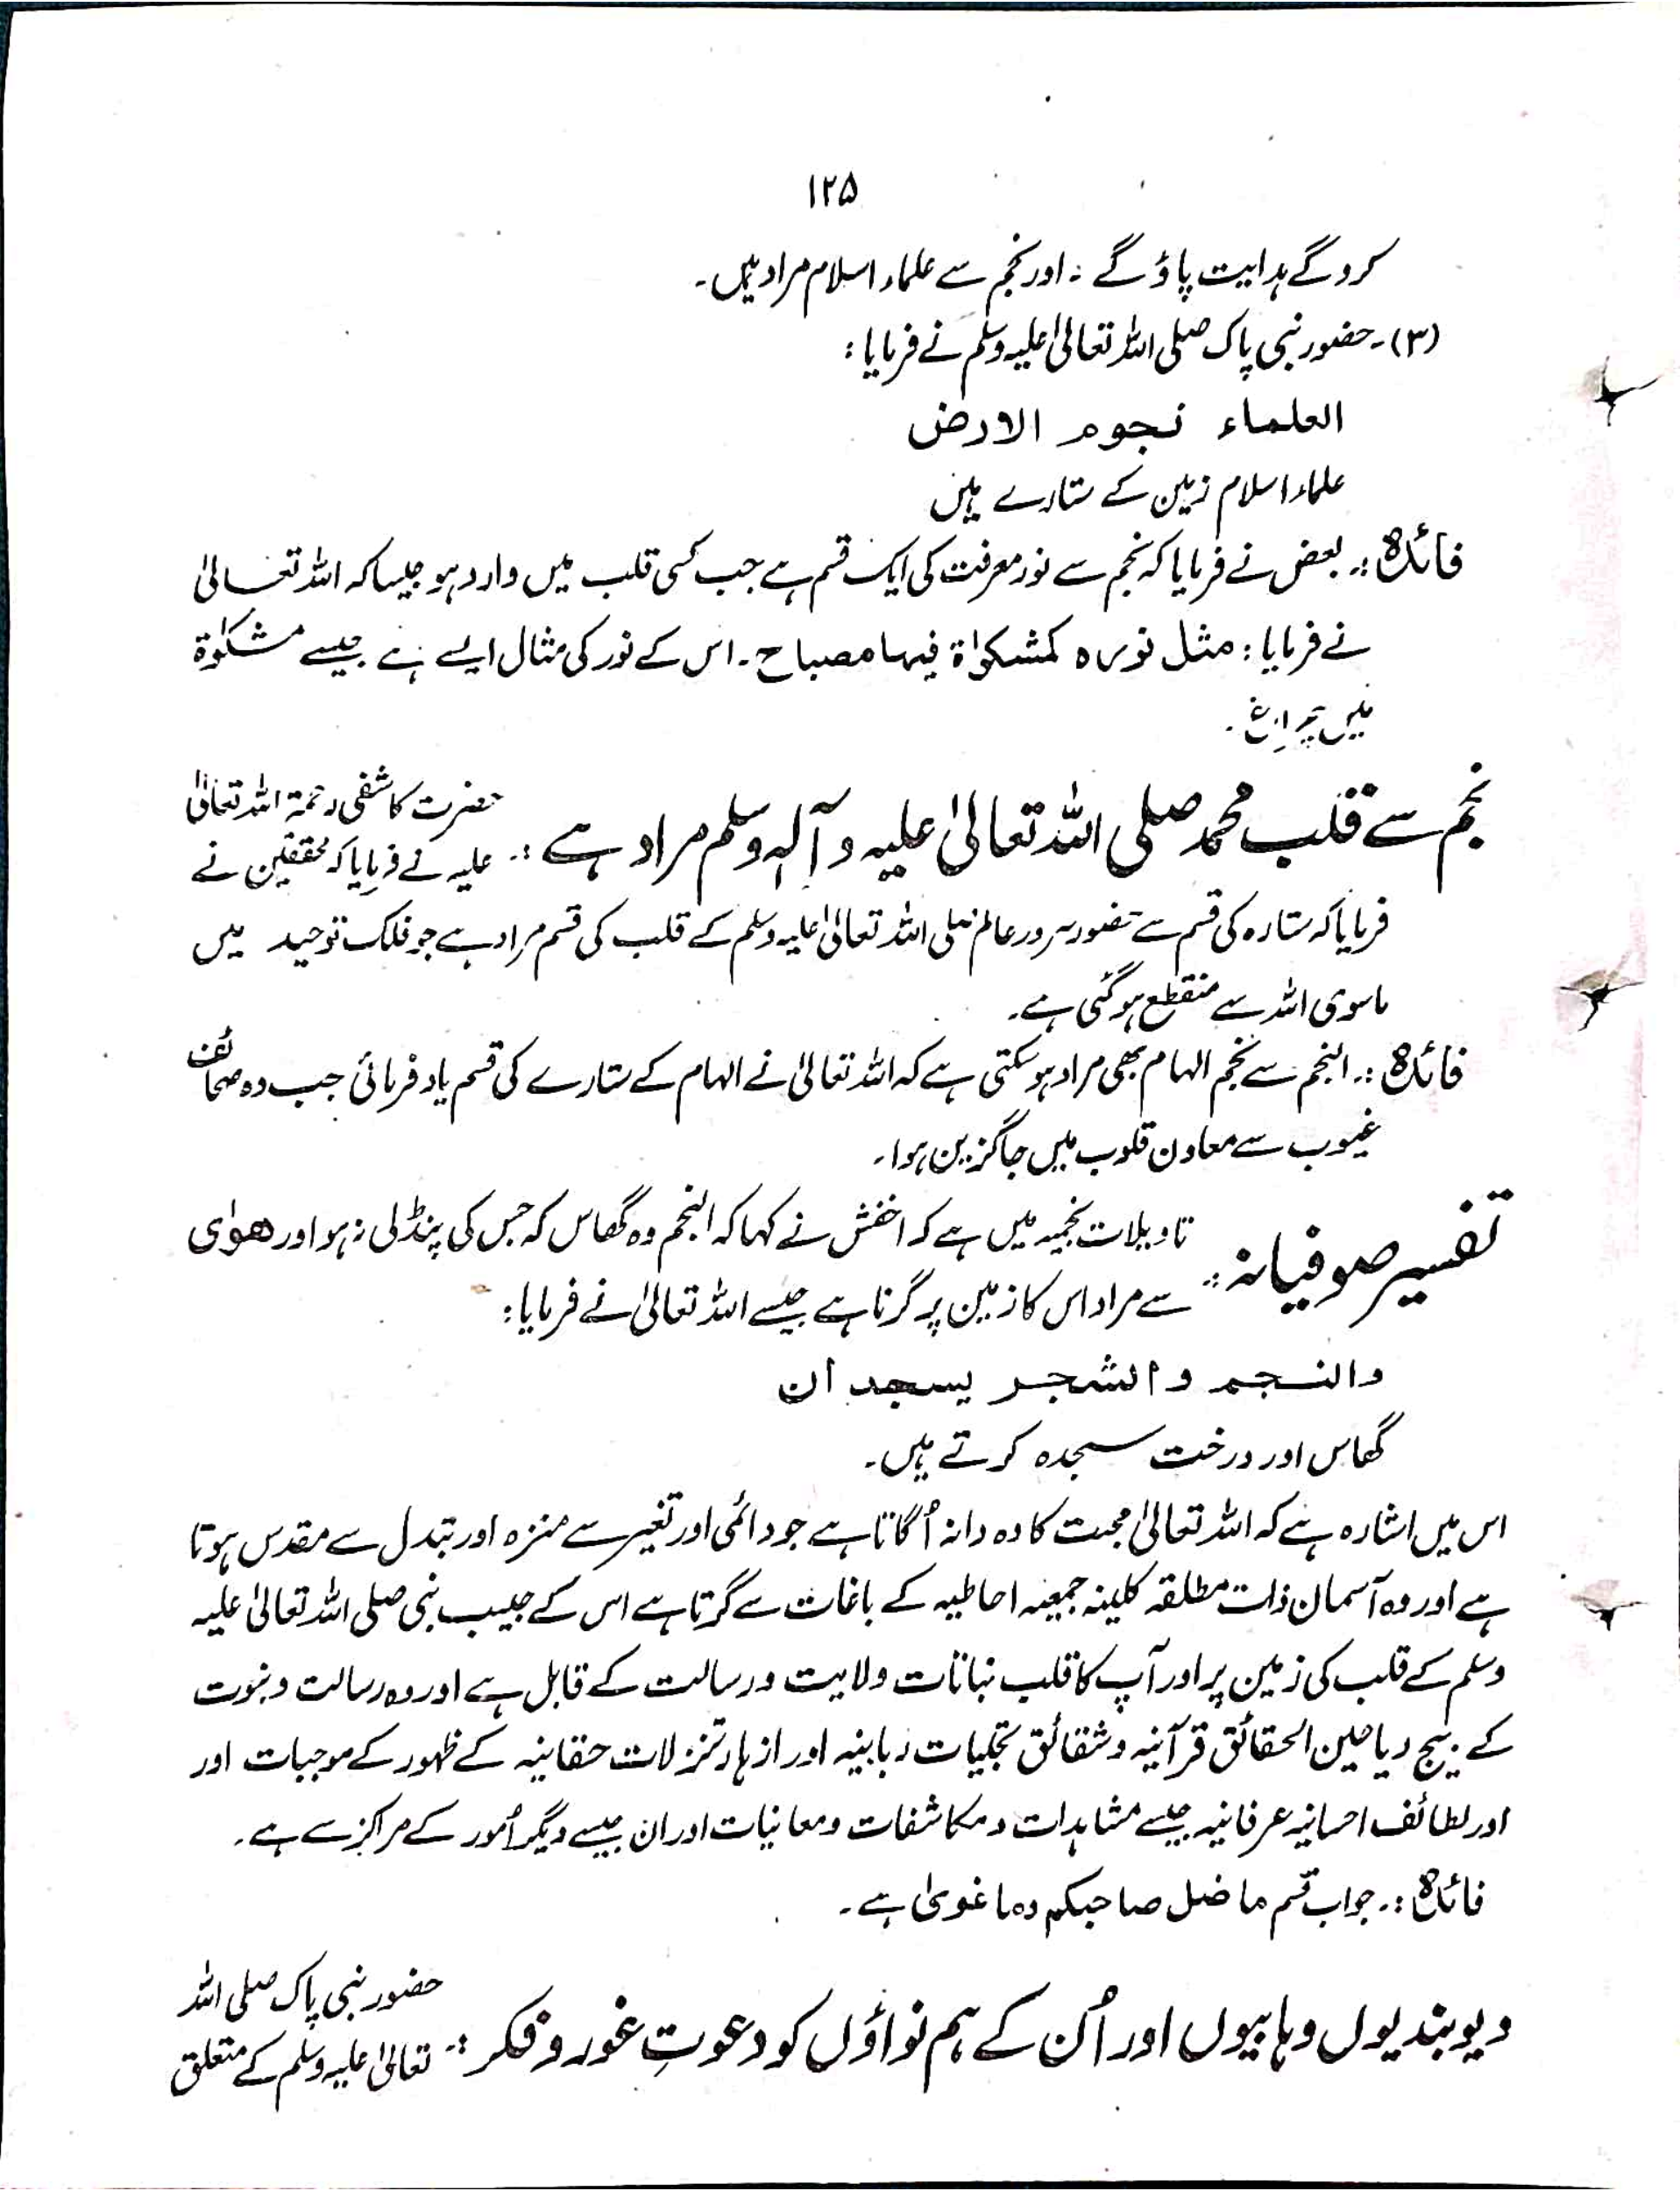 ۱۲۵
کروگے ہدایت پاؤ گے ۔ اور نجم سے علماء اسلام مراد ہیں۔
(۳)۔ حضور نبی پاک صلی اللہ تعالیٰ علیہ وسلم نے فرمایا:
العلماء نجوم الارض
علماء اسلام زمین کے ستارے ہیں
فائدہ :۔ بعض نے فرمایا کہ نجم سے نور معرفت کی ایک قسم ہے جب کسی قلب میں وارد ہو جیسا کہ اللہ تعالیٰ
نے فرمایا: مثل نورہ کمشکوٰۃ فیہا مصباح۔ اس کے نور کی مثال ایسے ہے جیسے مشکوٰۃ
میں چراغ۔
نجم سے قلب محمد صلی اللہ تعالیٰ علیہ وآلہ وسلم مراد ہے :۔ حضرت کاشفی رحمۃ اللہ تعالیٰ
علیہ نے فرمایا کہ محققین نے
فرمایا کہ ستارہ کی قسم سے حضور سرور عالم صلی اللہ تعالیٰ علیہ وسلم کے قلب کی قسم مراد ہے جو فلک توحید میں
ماسوی اللہ سے منقطع ہو گئی ہے۔
فائدہ :۔ النجم سے نجم الہام بھی مراد ہو سکتی ہے کہ اللہ تعالیٰ نے الہام کے ستارے کی قسم یاد فرمائی جب وہ صحائف
غیوب سے معاون قلوب میں جاگزین ہوا۔
تفسیر صوفیانہ :۔ تاویلات نجمیہ میں ہے کہ اخفش نے کہا کہ النجم وہ گھاس کہ جس کی پنڈلی نہ ہو اور ھوٰی
سے مراد اس کا زمین پر گرنا ہے جیسے اللہ تعالیٰ نے فرمایا:
والنجم والشجر یسجدان
گھاس اور درخت سجدہ کرتے ہیں۔
اس میں اشارہ ہے کہ اللہ تعالیٰ محبت کا وہ دانہ اُگاتا ہے جو دائمی اور تغیر سے منزہ اور تبدل سے مقدس ہوتا
ہے اور وہ آسمان ذات مطلقہ کلیۃ جمعیہ احاطیہ کے باغات سے گرتا ہے اس کے حبیب نبی صلی اللہ تعالیٰ علیہ
وسلم کے قلب کی زمین پر اور آپ کا قلب نباتات ولایت ورسالت کے قابل ہے اور وہ رسالت ونبوت
کے بیج ریاحین الحقائق قرآنیہ وشقائق تجلیات ربانیہ اور ازہار تنزلات حقانیہ کے ظہور کے موجبات اور
اور لطائف احسانیہ عرفانیہ جیسے مشاہدات ومکاشفات ومعانیات اور ان جیسے دیگر اُمور کے مراکز سے ہے۔
فائدہ :۔ جواب قسم ما ضل صاحبکم وما غویٰ ہے۔
دیوبندیوں وہابیوں اور اُن کے ہم نواؤں کو دعوتِ غور وفکر :۔ حضور نبی پاک صلی اللہ
تعالیٰ علیہ وسلم کے متعلق